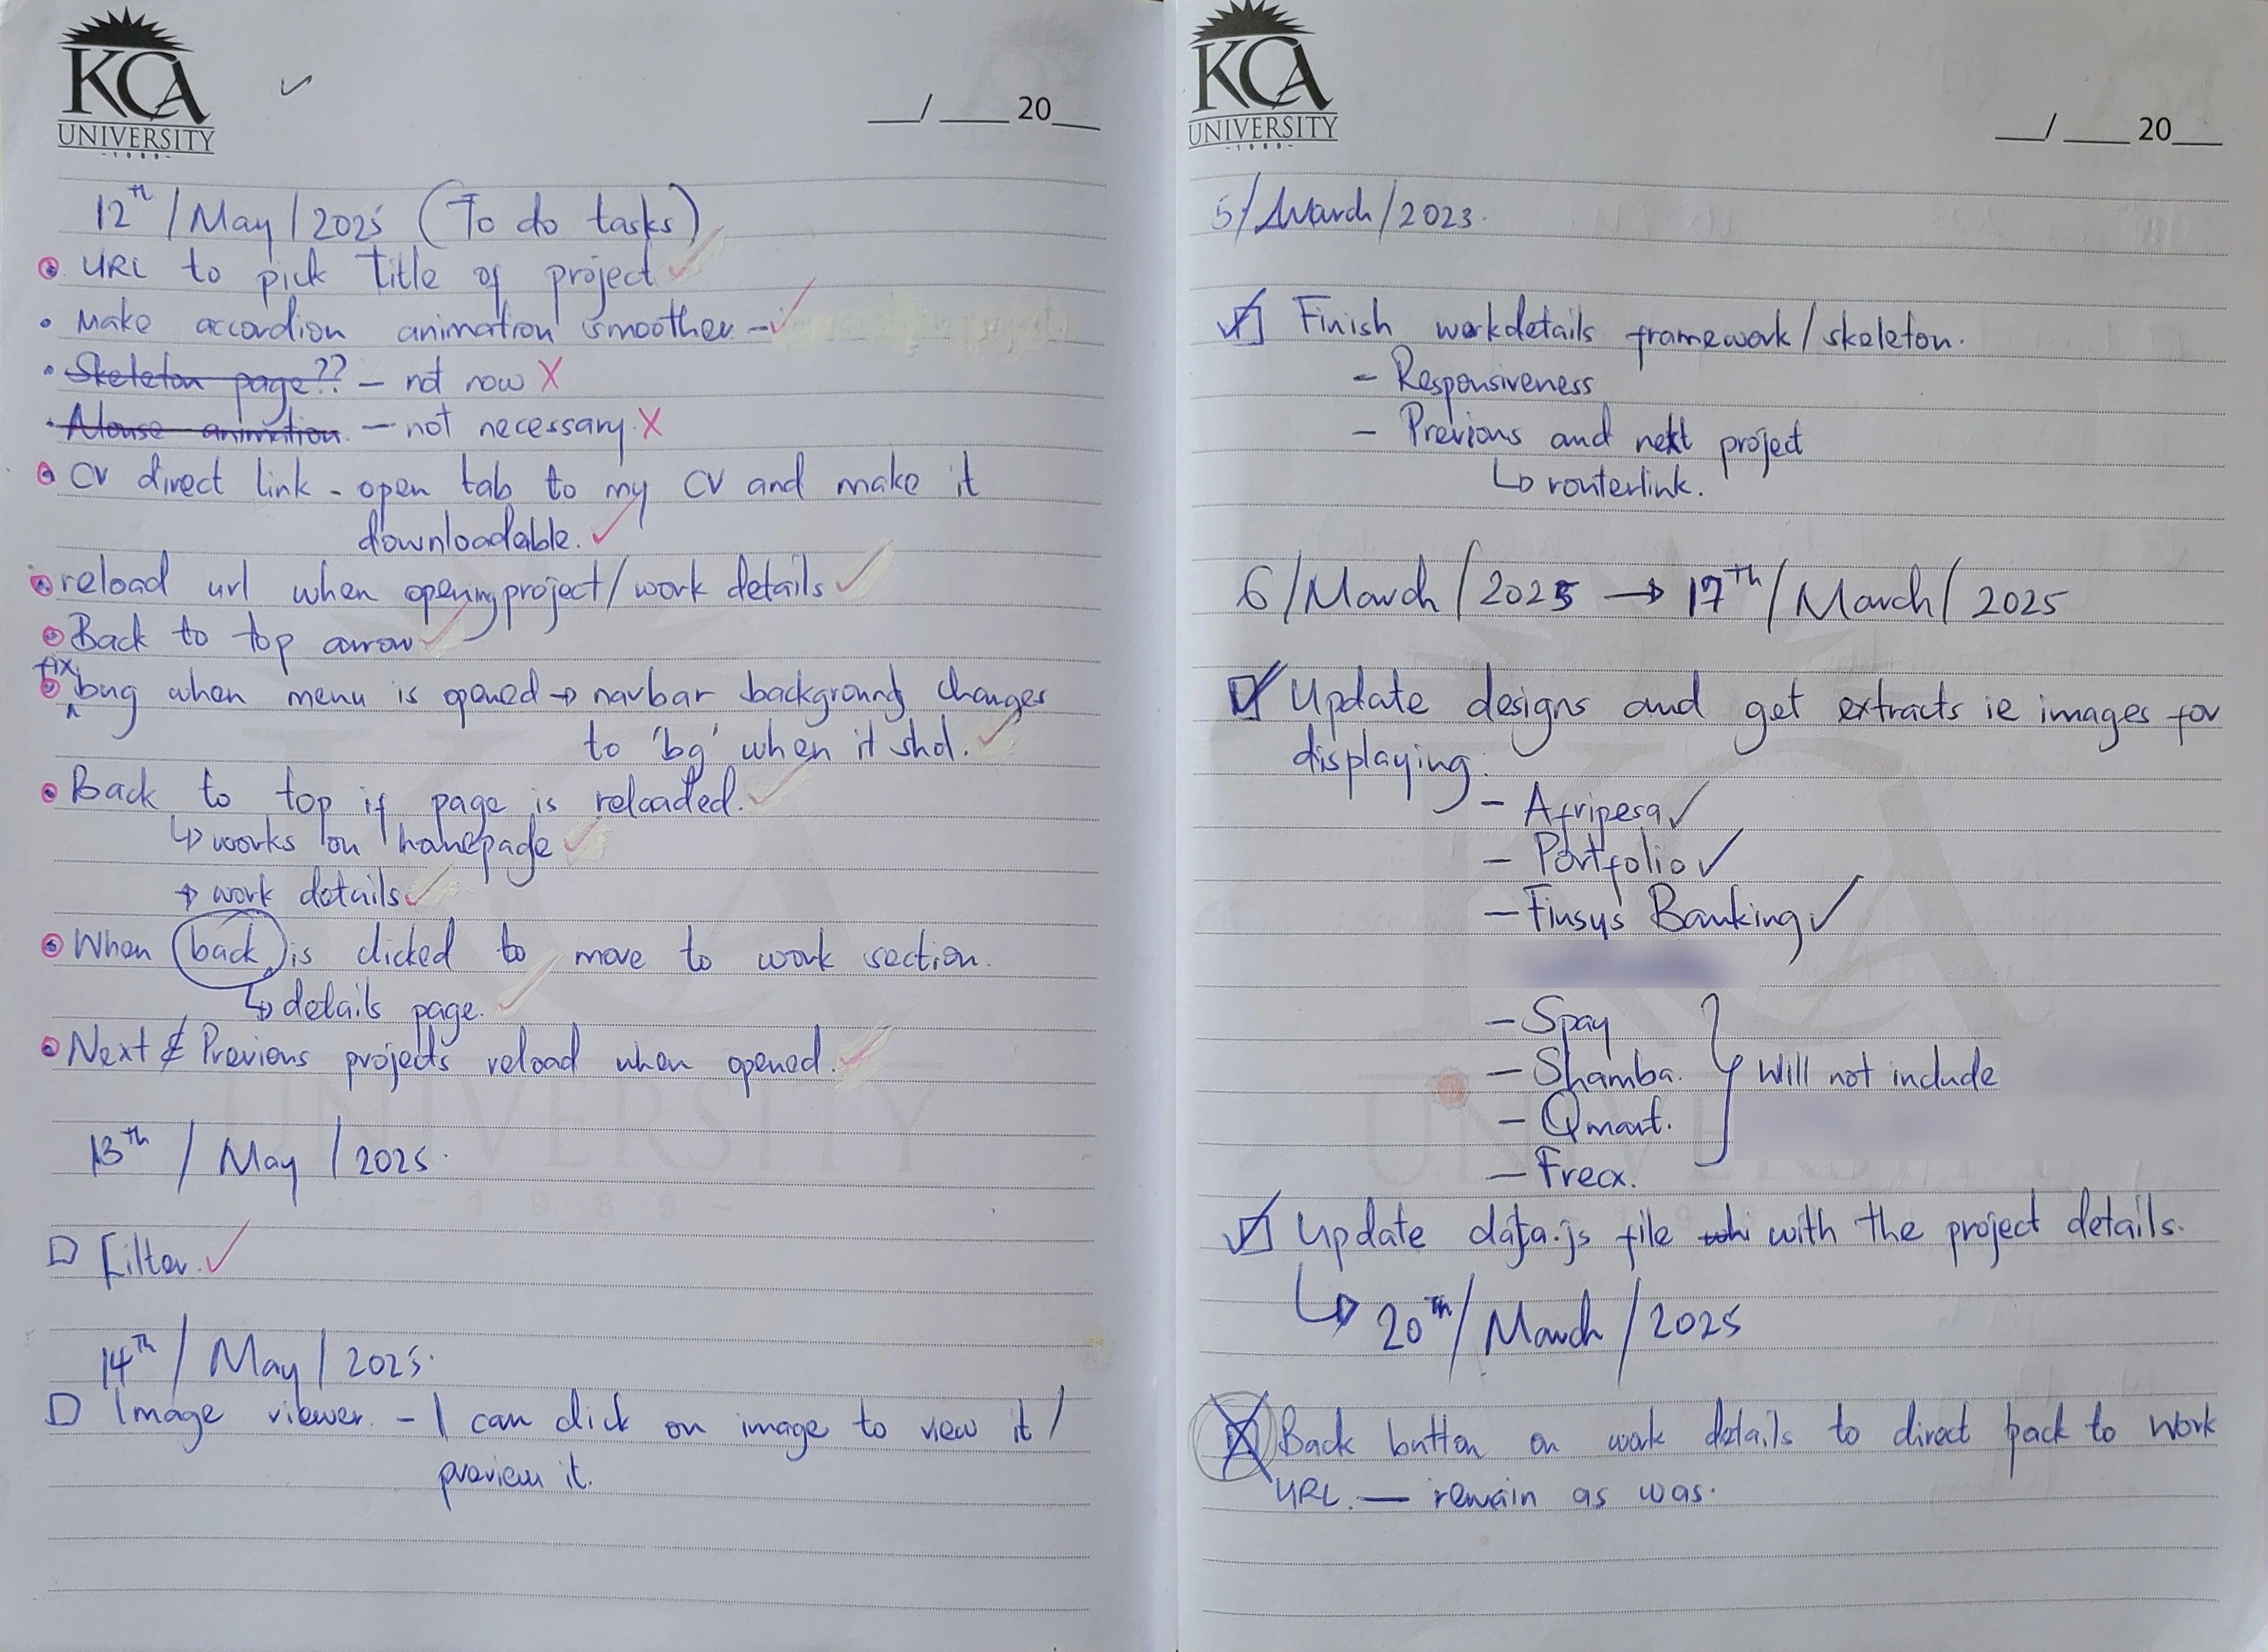 KCA
UNIVERSITY
-1989-
__/ ____ 20__
12th / May / 2025 (To do tasks)
• URL to pick title of project ✓
• Make accordion animation smoother - ✓
• Skeleton page?? - not now X
• Mouse animation - not necessary. X
• CV direct link - open tab to my CV and make it
downloadable. ✓
• reload url when opening project / work details ✓
• Back to top arrow ✓
• fix bug when menu is opened → navbar background changes
to 'bg' when it shd. ✓
• Back to top if page is reloaded. ✓
↳ works on homepage ✓
→ work details ✓
• When back is clicked to move to work section.
↳ details page. ✓
• Next & Previous projects reload when opened. ✓
13th / May / 2025.
☐ Filter. ✓
14th / May / 2025.
☐ Image viewer. - I can click on image to view it /
preview it.
KCA
UNIVERSITY
-1989-
__/ ____ 20__
5 / March / 2023.
☑ Finish workdetails framework / skeleton.
- Responsiveness
- Previous and next project
↳ routerlink.
6 / March / 2025 → 17th / March / 2025
☑ Update designs and get extracts ie images for
displaying.
- Afripesa ✓
- Portfolio ✓
- Finsys Banking ✓
- Spay
- Shamba. } Will not include
- Qmart.
- Frecx.
☑ Update data.js file with the project details.
↳ 20th / March / 2025
☒ Back button on work details to direct back to work
URL. — remain as was.